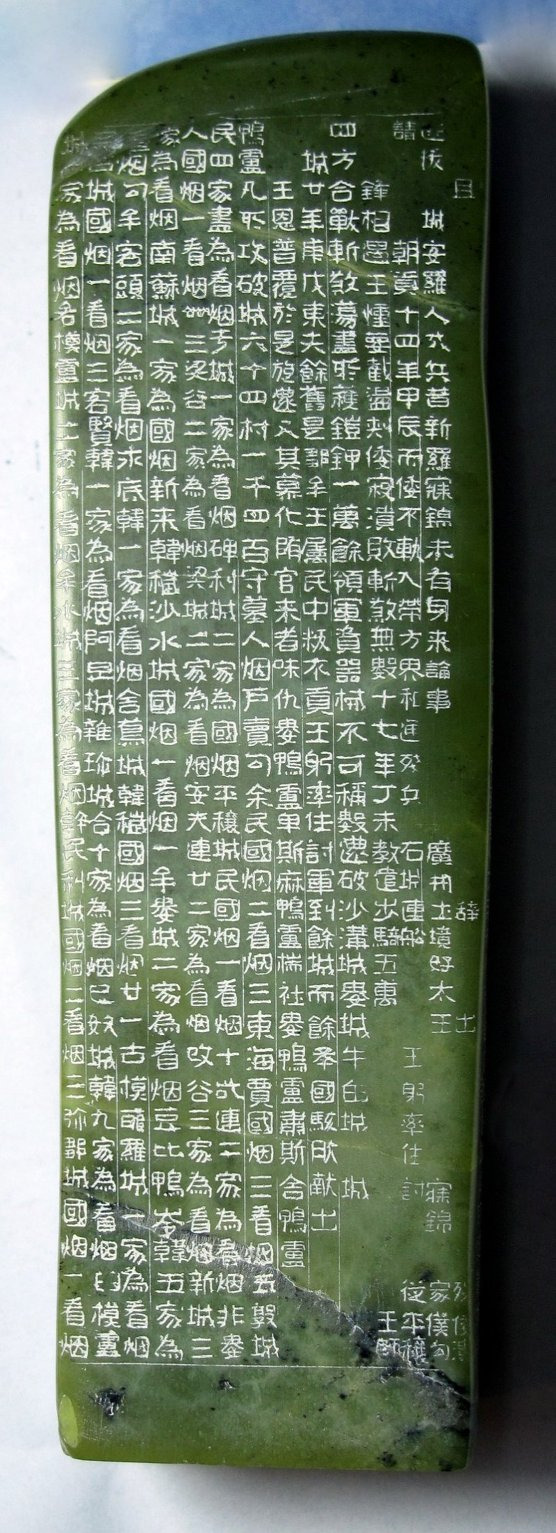 且 辭 出
拔 城安羅人戍兵昔新羅寐錦未有身來論事 廣開土境好太王 寐錦 家僕勾
請 朝貢十四年甲辰而倭不軌入帶方界和通殘兵 石城連船 王躬率往討 從平穰
鋒相遇王幢要截盪刺倭寇潰敗斬煞無數十七年丁未教遣步騎五萬 王師
四方合戰斬煞蕩盡所稚鎧鉀一萬餘領軍資器械不可稱數還破沙溝城婁城牛由城 城
城廿年庚戌東夫餘舊是鄒牟王屬民中叛不貢王躬率往討軍到餘城而餘舉國駭服獻出
王恩普覆於是旋還又其慕化隨官来者味仇婁鴨盧卑斯麻鴨盧椯社婁鴨盧肅斯舍鴨盧
鴨盧凡所攻破城六十四村一千四百守墓人烟戶賣勾余民國烟二看烟三東海賈國烟三看烟五敦城
民四家盡為看烟于城一家為看烟碑利城二家為國烟平穰城民國烟一看烟十訾連二家為看烟俳婁
人國烟一看烟卌三梁谷二家為看烟梁城二家為看烟安夫連廿二家為看烟改谷三家為看烟新城三
家為看烟南蘇城一家為國烟新来韓穢沙水城國烟一看烟一牟婁城二家為看烟豆比鴨岑韓五家為
看烟勾牟客頭二家為看烟求底韓一家為看烟舍蔦城韓穢國烟三看烟廿一古模耶羅城一家為看烟
古城國烟一看烟三客賢韓一家為看烟阿旦城雜珍城合十家為看烟巴奴城韓九家為看烟臼模盧
城四家為看烟各模盧城二家為看烟牟水城三家為看烟幹氐利城國烟二看烟三弥鄒城國烟一看烟